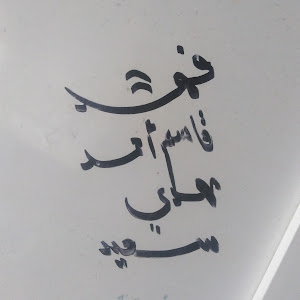 فهد
قاسم أحمد
مهدي
سعيد